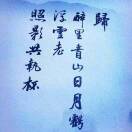 歸
醉里青山日月鶴
浮雲老
照影共執杯